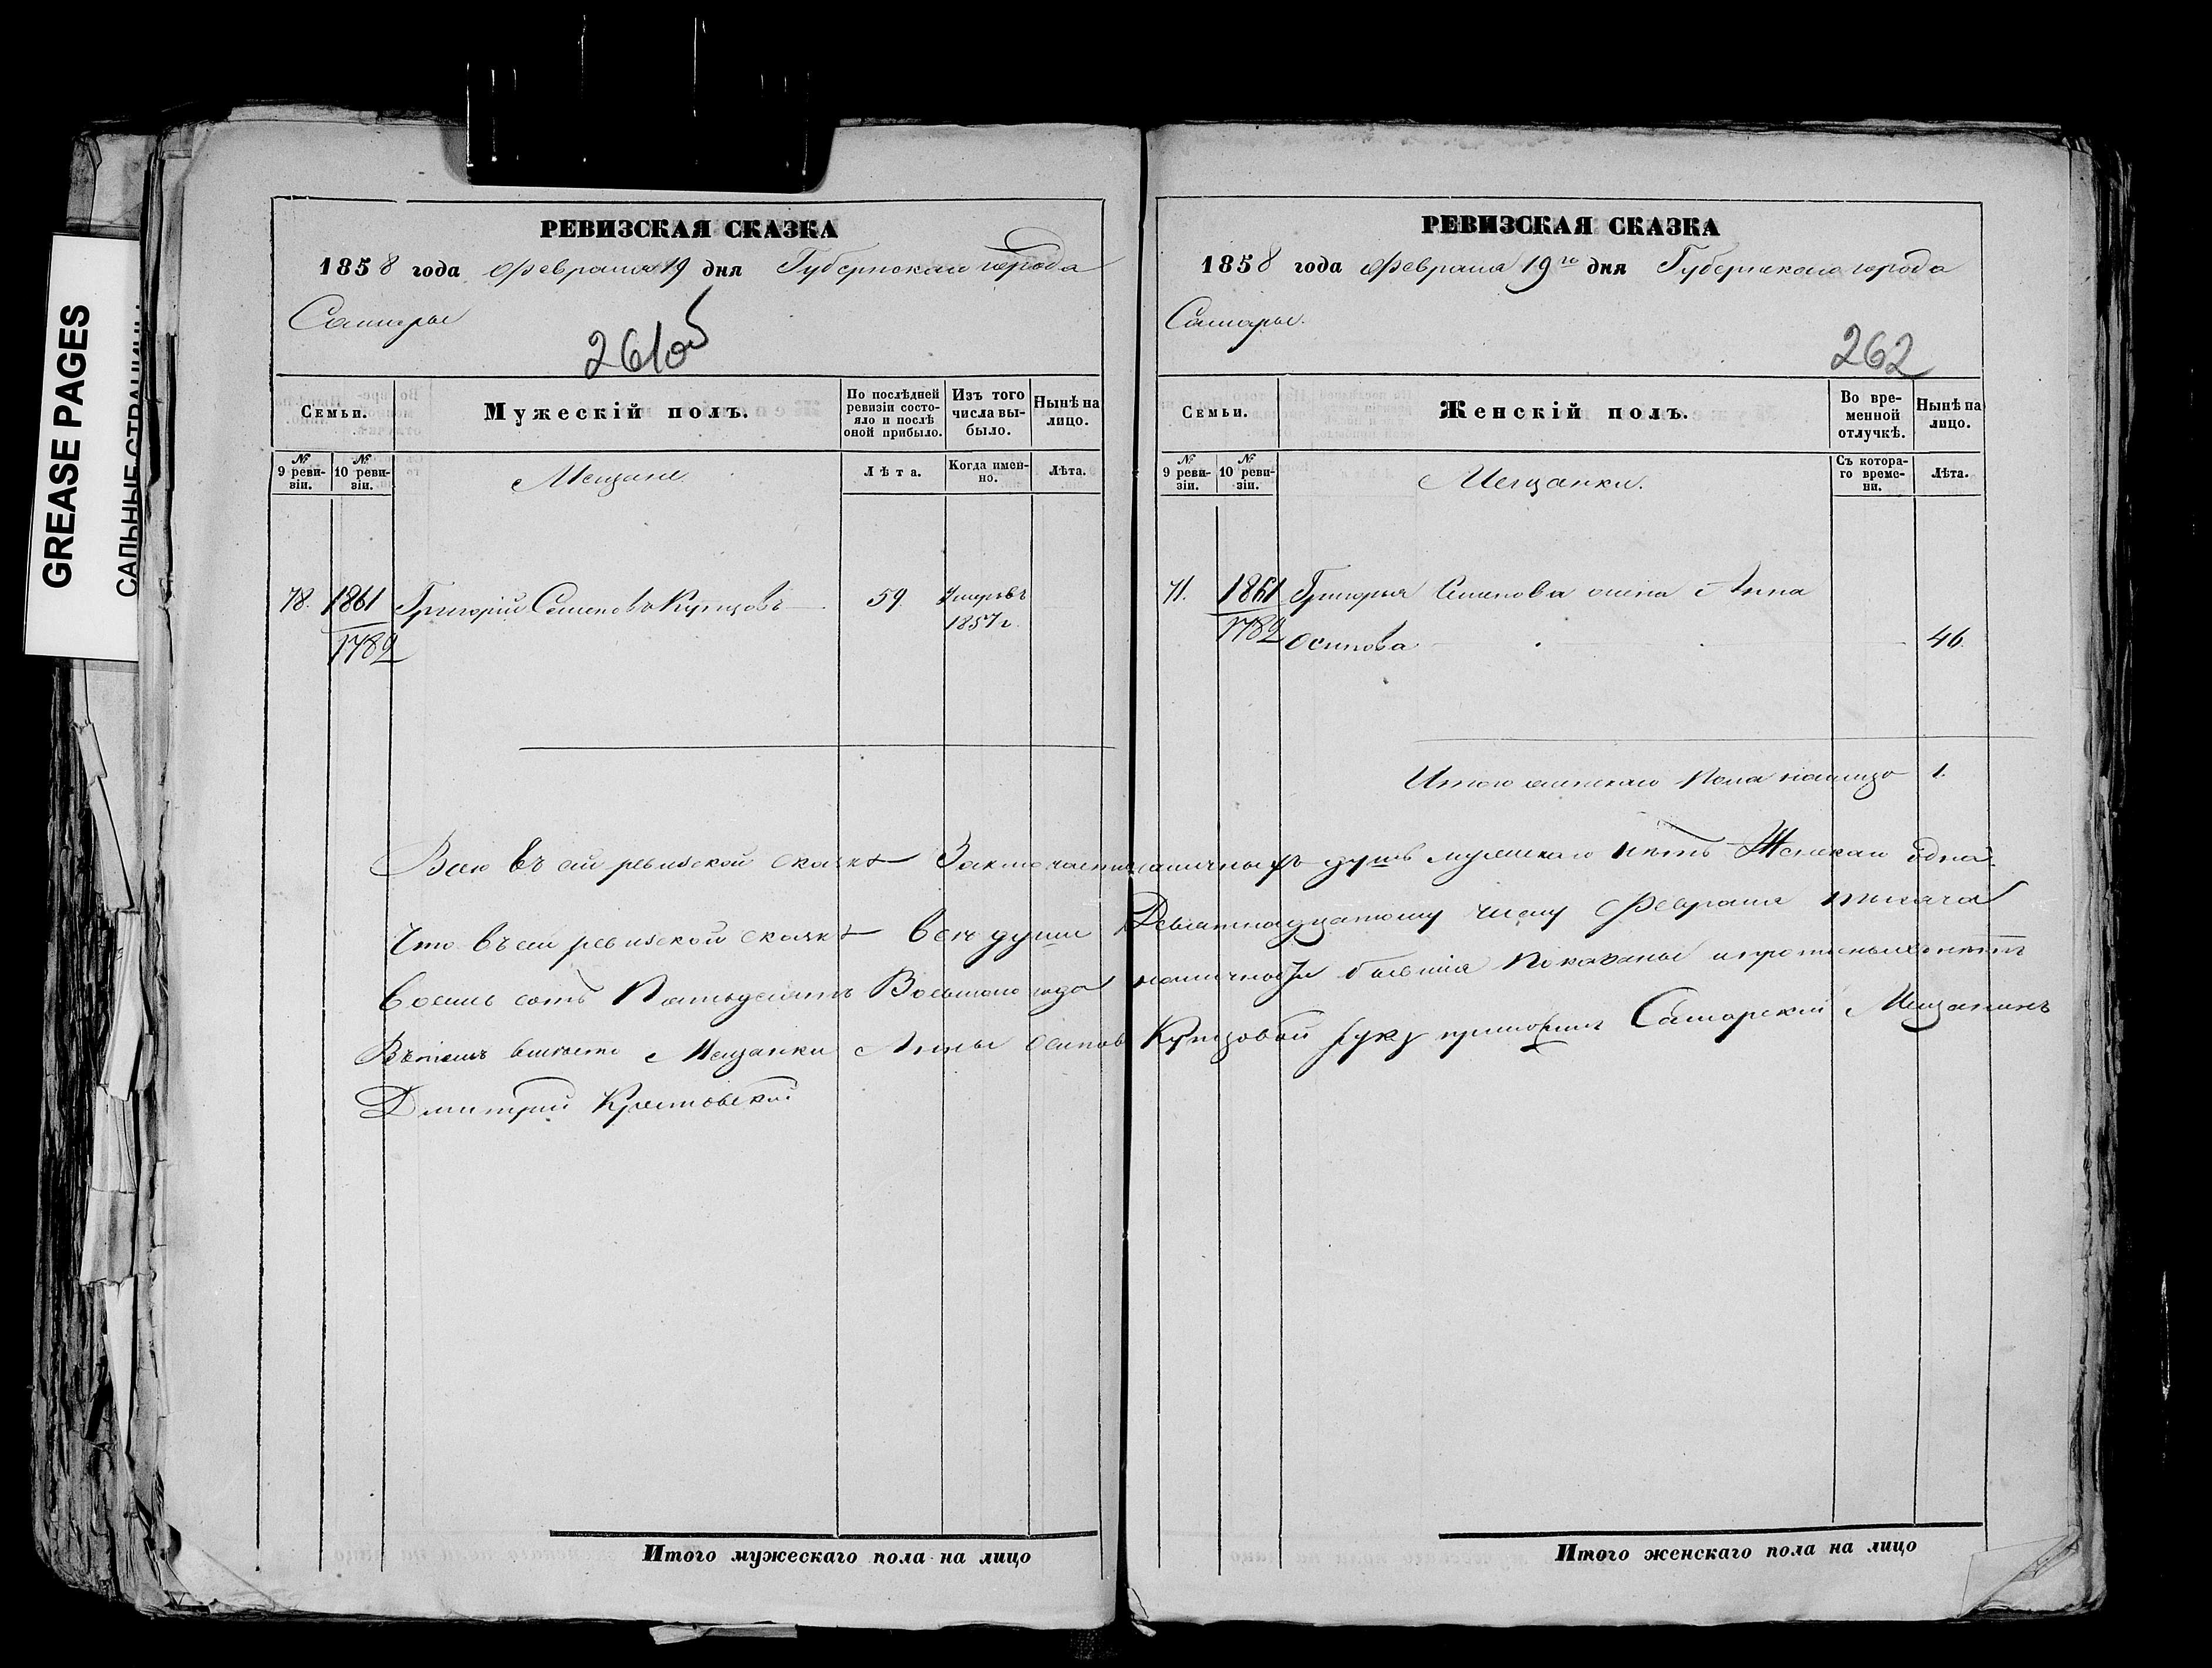 GREASE PAGES
САЛЬНЫЕ СТРАНИЦЫ
РЕВИЗСКАЯ СКАЗКА
1858 года Февраля 19 дня Губернскаго города
Самары
261об
Семьи.
Мужескій полъ.
По послѣдней ревизіи состояло и послѣ оной прибыло.
Изъ того числа выбыло.
Нынѣ на лицо.
№ 9 ревизіи.
№ 10 ревизіи.
Мещане
Лѣта.
Когда именно.
Лѣта.
78. 1861 Григорій Семеновъ Купцовъ 59. Умеръ въ
1782 1857 г.
Итого мужескаго пола на лицо
РЕВИЗСКАЯ СКАЗКА
1858 года Февраля 19го дня Губернскаго города
Самары.
262
Семьи.
Женскій полъ.
Во временной отлучкѣ.
Нынѣ на лицо.
№ 9 ревизіи.
№ 10 ревизіи.
Мещанки.
Съ котораго времени.
Лѣта.
71. 1861 Григорья Семенова жена Анна
1782 Осипова 46.
Итого женскаго пола налицо 1.
Всего въ сей ревизской сказкѣ Заключается наличныхъ душъ мужескаго нѣтъ Женскаго одна.
Что въ сей ревизской сказкѣ всѣ души Девятнадцатому числу Февраля тысяча
восемь сотъ Пятьдесятъ Восьмаго года наличность бывшія показаны и прописныхъ нѣтъ
Въ томъ вмѣсто Мещанки Анны Осипов Купцовой руку приложилъ Самарскій Мещанинъ
Дмитрий
Итого женскаго пола на лицо